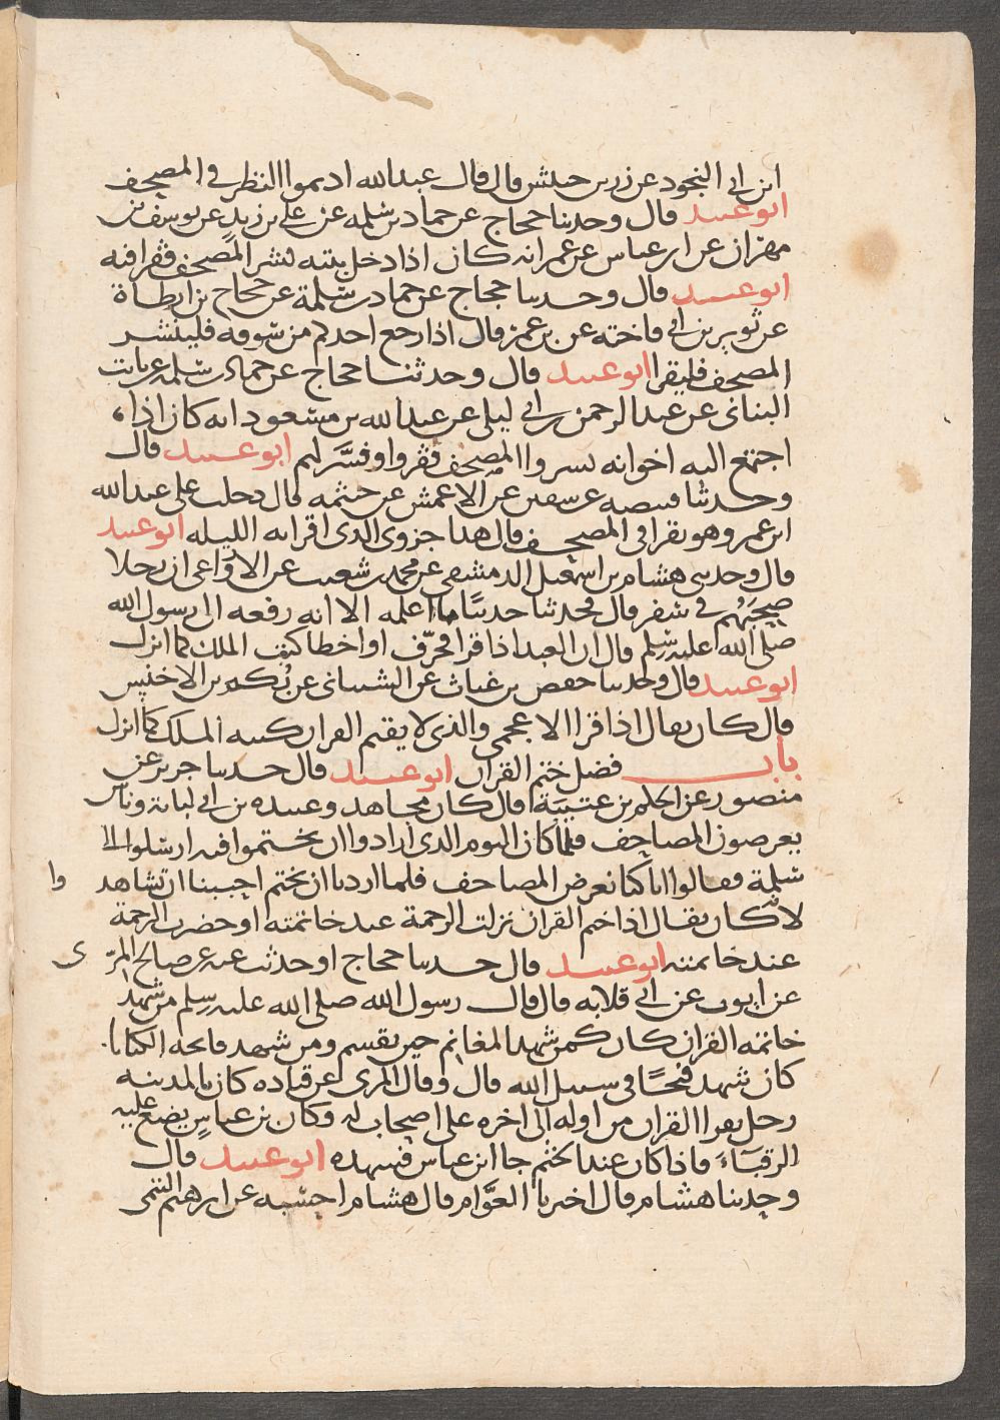 ابن ابي النجود عن زر بن حبيش قال قال عبدالله اديموا النظر في المصحف
ابو عبيد قال وحدثنا حجاج عن حماد بن سلمه عن علي بن زيد عن يوسف بن
مهران عن ابن عباس عن عمر انه كان اذا دخل بيته نشر المصحف فقرا فيه
ابو عبيد قال وحدثنا حجاج عن حماد بن سلمة عن حجاج بن ارطاة
عن ثوير بن ابي فاخته عن بن عمر قال اذا رجع احدكم من سوقه فلينشر
المصحف فليقرا ابو عبيد قال وحدثنا حجاج عن حماد بن سلمه عن ثابت
البناني عن عبد الرحمن بن ابي ليلى عن عبدالله بن مسعود انه كان اذا
اجتمع اليه اخوانه نشروا المصحف فقروا وفسر لهم ابو عبيد قال
وحدثنا قبيصه عن سفين عن الاعمش عن خيثمه قال دخلت على عبدالله
ابن عمرو وهو يقرا في المصحف قال هذا جزوي الذي اقرا به الليله ابو عبيد
قال وحدثني هشام بن اسمعيل الدمشقي عن محمد بن شعيب عن الاوزاعي ان رجلا
صحبهم في سفر قال فحدثنا حديثا ما اعلمه الا انه رفعه الى رسول الله
صلى الله عليه وسلم قال ان العبد اذا قرا فحرف او اخطا كتبه الملك كما انزل
ابو عبيد قال وحدثنا حفص بن غياث عن الشيباني عن بكير بن الاخنس
قال كان يقال اذا قرا الاعجمي والذي لا يقيم القران كتبه الملك كما انزل
باب فضل ختم القران ابو عبيد قال حدثنا جرير عن
منصور عن الحكم بن عتيبة قال كان مجاهد وعبده بن ابي لبابة وناس
يعرضون المصاحف فلما كان اليوم الذي ارادوا ان يختموا فيه ارسلوا الي
سلمة فقالوا انا كنا نعرض المصاحف فلما اردنا ان نختم احببنا ان تشاهد وا
لانه كان يقال اذا ختم القران نزلت الرحمة عند خاتمته او حضرت الرحمة
عند خاتمته ابو عبيد قال حدثنا حجاج او حدثت عنه عن صالح المر ي
عن ايوب عن ابي قلابه قال قال رسول الله صلى الله عليه وسلم من شهد
خاتمه القران كان كمن شهد المغانم حين يقسم ومن شهد فاتحه الكتاب
كان شهد فتحا في سبيل الله قال وقال المري عن قتاده كان بالمدينه
رجل يقرا القران من اوله الى اخره على اصحاب له وكان بن عباس يضع عليه
الرقباء فاذا كان عند الختم جا ابن عباس فشهده ابو عبيد قال
وحدثنا هشام قال اخبرنا العوام قال هشام احسبه عن ابرهيم التيمي